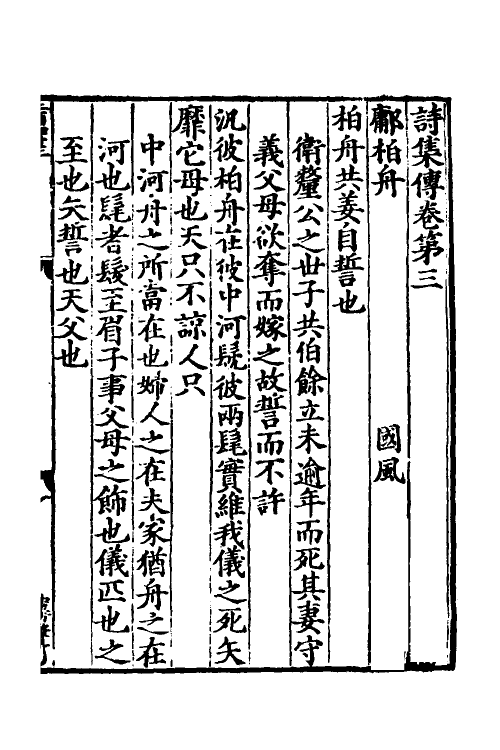 詩集傳卷第三
鄘柏舟　　國風
柏舟共姜自誓也
衛釐公之世子共伯餘立未逾年而死其妻守
義父母欲奪而嫁之故誓而不許
汎彼柏舟在彼中河髧彼兩髦實維我儀之死矢
靡它母也天只不諒人只
中河舟之所當在也婦人之在夫家猶舟之在
河也髦者髮至眉子事父母之飾也儀匹也之
至也矢誓也天父也